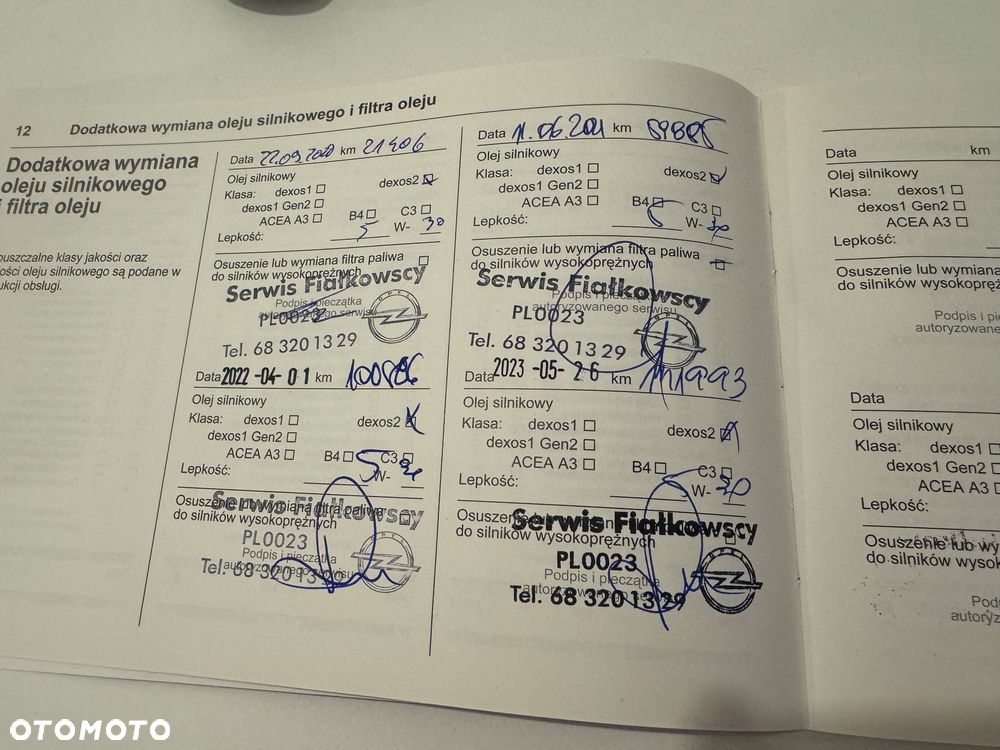 12 Dodatkowa wymiana oleju silnikowego i filtra oleju
Dodatkowa wymiana
oleju silnikowego
i filtra oleju
puszczalne klasy jakości oraz
ości oleju silnikowego są podane w
ukcji obsługi.
Data 22.09.2020 km 21406
Olej silnikowy
Klasa: dexos1 dexos2
dexos1 Gen2
ACEA A3 B4 C3
Lepkość: 5 W- 30
Osuszenie lub wymiana filtra paliwa
do silników wysokoprężnych
Serwis Fiałkowscy
Podpis i pieczątka
autoryzowanego serwisu
PL0023
OPEL
Tel. 68 320 13 29
Data 2022-04-01 km
Olej silnikowy
Klasa: dexos1 dexos2
dexos1 Gen2
ACEA A3 B4 C3
Lepkość: 5 W- 30
Osuszenie lub wymiana filtra paliwa
do silników wysokoprężnych
Serwis Fiałkowscy
PL0023
Podpis i pieczątka
autoryzowanego serwisu
Tel. 68 320 13 29
Data 11.06.2021 km
Olej silnikowy
Klasa: dexos1 dexos2
dexos1 Gen2
ACEA A3 B4 C3
Lepkość: 5 W- 30
Osuszenie lub wymiana filtra paliwa
do silników wysokoprężnych
Serwis Fiałkowscy
Podpis i pieczątka
autoryzowanego serwisu
PL0023
OPEL
Tel. 68 320 13 29
Data 2023-05-26 km 111993
Olej silnikowy
Klasa: dexos1 dexos2
dexos1 Gen2
ACEA A3 B4 C3
Lepkość: 5 W- 30
Osuszenie lub wymiana filtra paliwa
do silników wysokoprężnych
Serwis Fiałkowscy
PL0023
OPEL
Podpis i pieczątka
autoryzowanego serwisu
Tel. 68 320 13 29
Data km
Olej silnikowy
Klasa: dexos1
dexos1 Gen2
ACEA A3
Lepkość:
Osuszenie lub wymiana
do silników wysokopręż
Podpis i pie
autoryzowane
Data
Olej silnikowy
Klasa: dexos1
dexos1 Gen2
ACEA A3
Lepkość:
Osuszenie lub wy
do silników wysok
Pod
autoryz
OTOMOTO